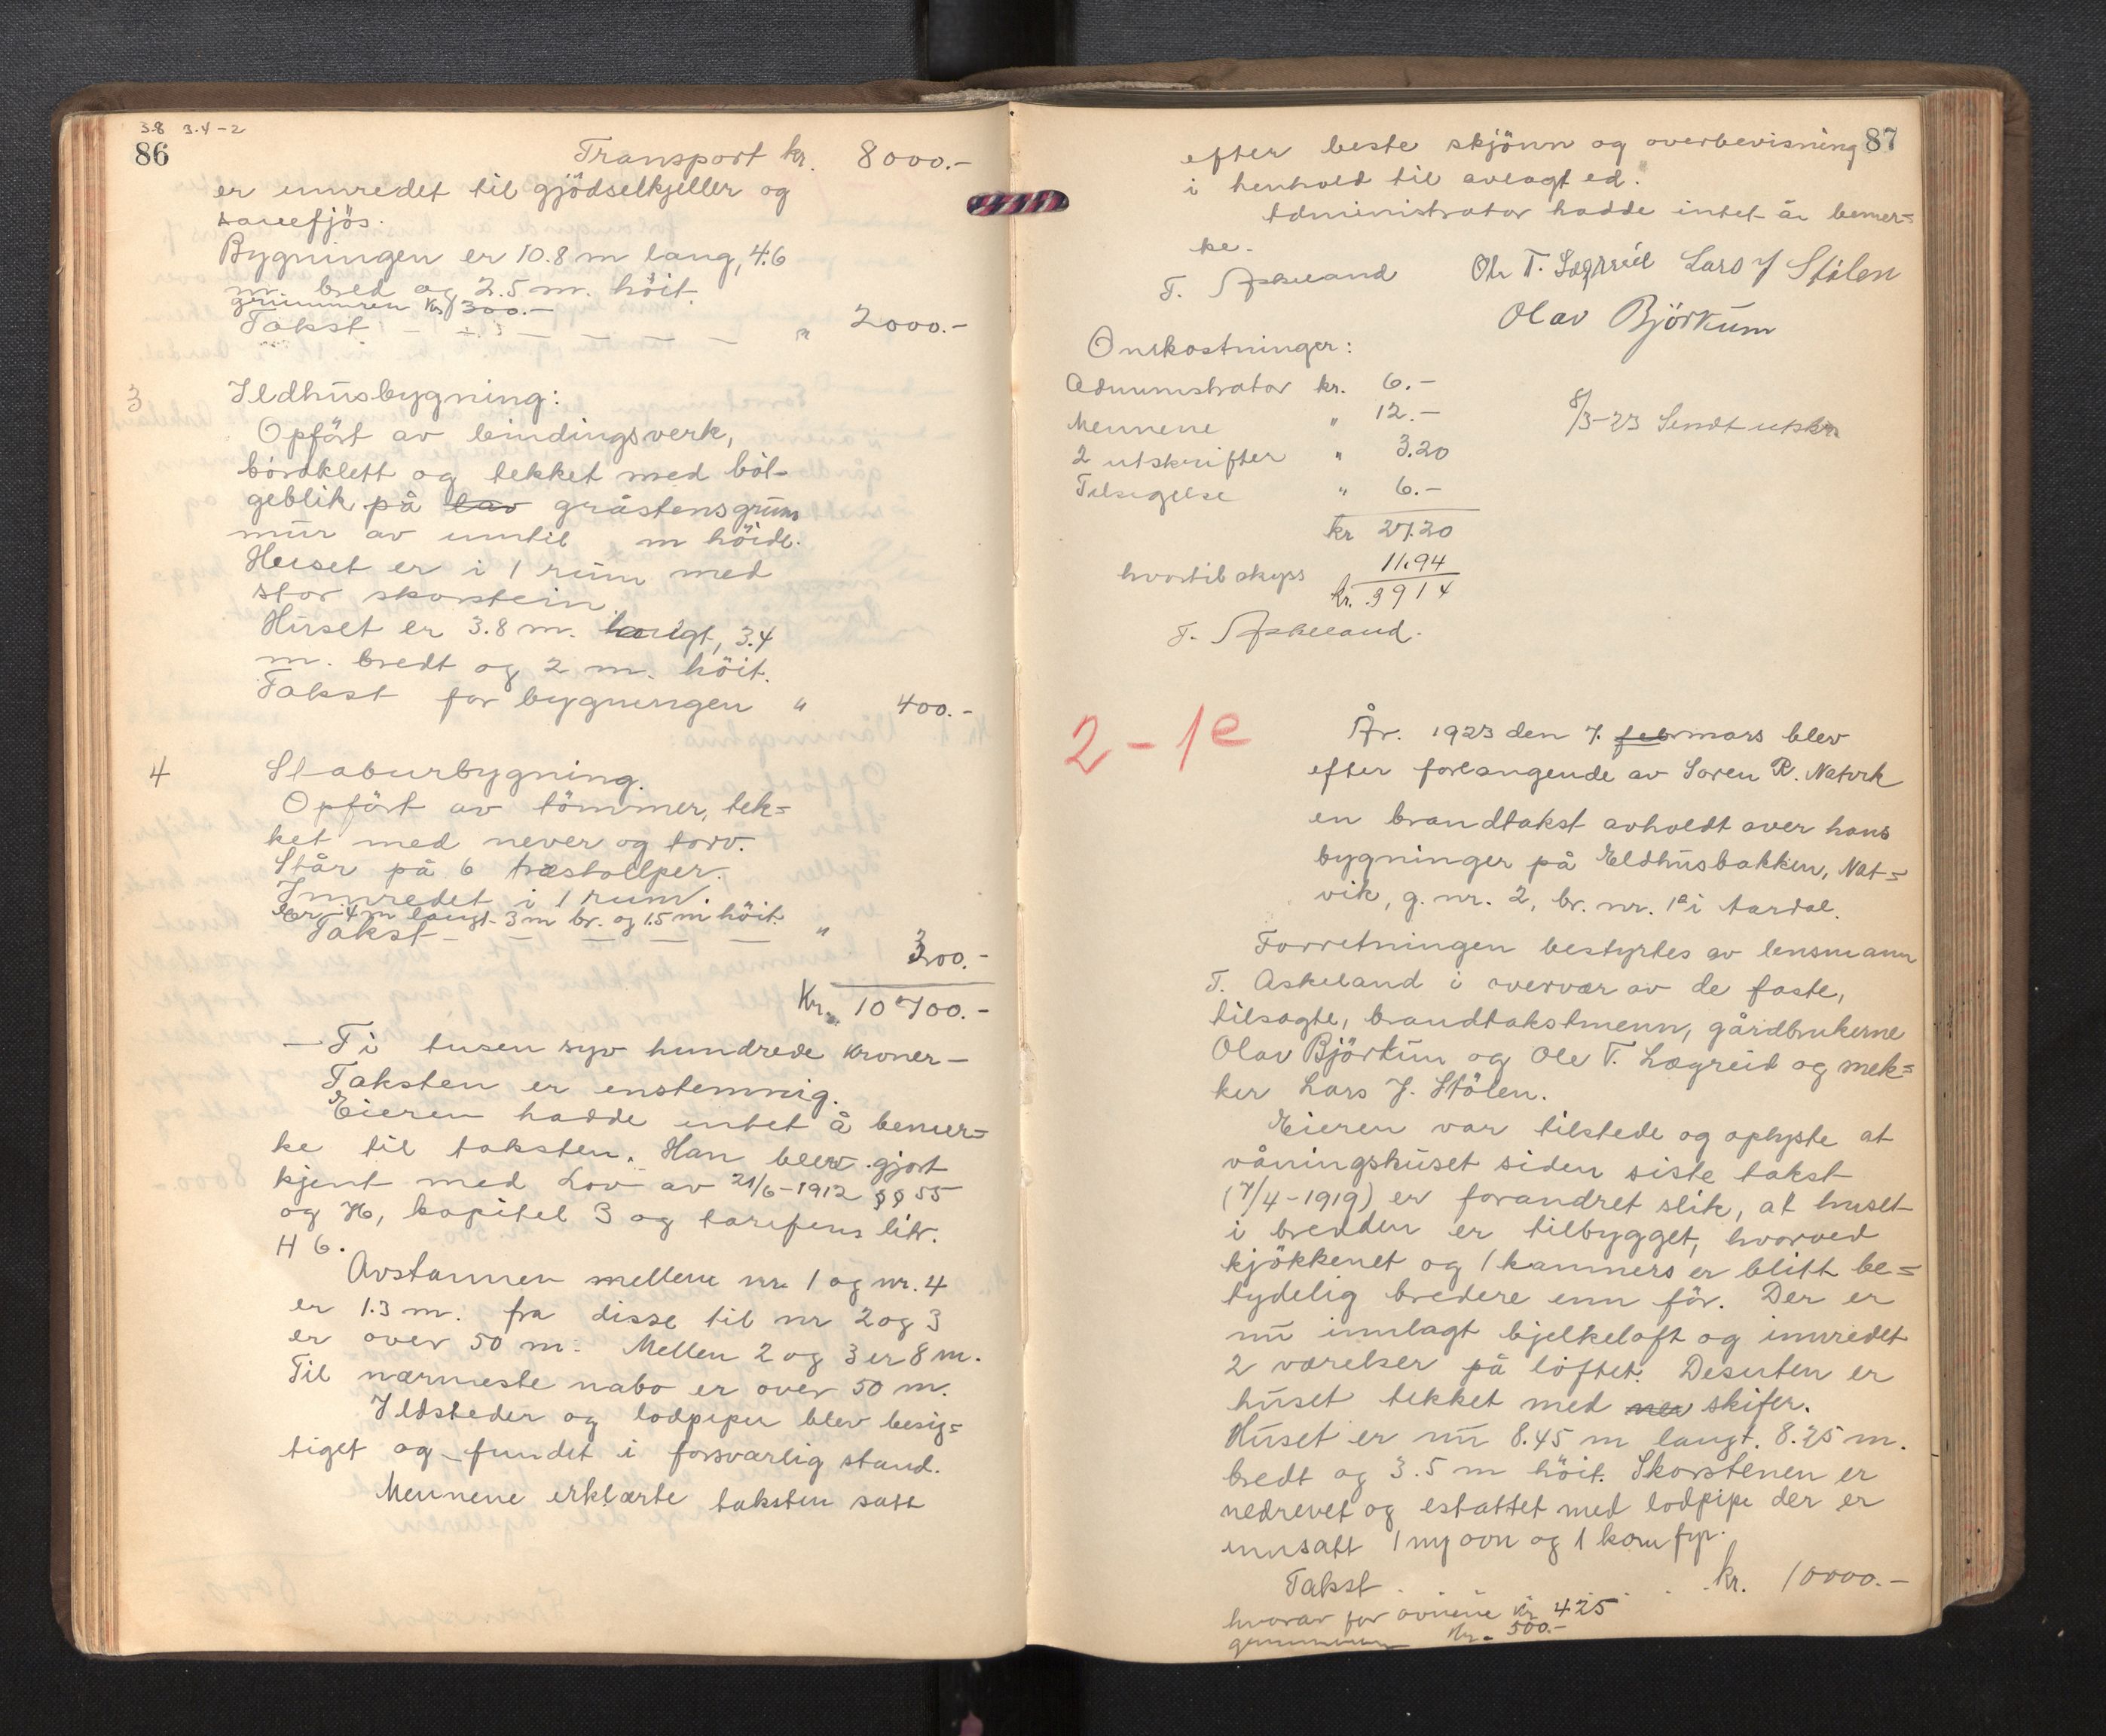 3.8 3.4-2
86
Transport kr. 8000.-
er innredet til gjödselkjeller og
sauefjös.
Bygningen er 10.8 m lang, 4.6
m. bred og 2.5 m. höit.
grunnmuren kr 300.-
Takst - - - - - " 2000.-
3 Ildhusbygning:
Opfört av bindingsverk,
bordklett og tekket med böl-
geblik på lav gråstensgrunn
mur av inntil m höide.
Huset er i 1 rum med
stor skorstein.
Huset er 3.8 m. langt, 3.4
m. bredt og 2 m. höit.
Takst for bygningen " 400.-
4 Stabursbygning.
Opfört av tömmer, tek=
ket med never og torv.
Står på 6 træstollper.
Innredet i 1 rum.
er 4 m langt 3 m br. og 1.5 m höit.
Takst - - - - " 300.-
Kr. 10700.-
- Ti tusen syv hundrede kroner -
Taksten er enstemmig.
Eieren hadde intet å bemer=
ke til taksten. Han blev gjort
kjent med Lov av 21/6-1912 §§ 55
og 76, kapitel 3 og tarifens litr.
H 6.
Avstannen mellem nr. 1 og nr. 4
er 1.3 m. fra disse til nr 2 og 3
er over 50 m. Mellem 2 og 3 er 8 m.
Til nærmeste nabo er over 50 m.
Ildsteder og lodpiper blev besig=
tiget og fundet i forsvarlig stand.
Mennene erklærte taksten satt
87
efter beste skjönn og overbevisning
i henhold til avlagt ed.
Administrator hadde intet å bemer=
ke.
T. Askeland Ole T. Lægreid Lars J Stölen
Olav Björkum
Omkostninger:
Administrator kr. 6.-
Mennene " 12.-
2 utskrifter " 3.20
Tilsigelse " 6.-
kr 27.20
hvortil skyss 11.94
kr. 39 14
8/3-23 Sendt utskr.
T. Askeland.
2-1e
År. 1923 den 7. feb mars blev
efter forlangende av Soren R. Natvik
en brandtakst avholdt over hans
bygninger på Eldhusbakken, Nat=
vik, g. nr. 2, br. nr. 1e i Aardal.
Forretningen bestyrtes av lensmann
T. Askeland i overvær av de faste,
tilsagte, brandtakstmenn, gårdbrukerne
Olav Björkum og Ole T. Lægreid og mek=
ker Lars J. Stölen.
Eieren var tilstede og oplyste at
våningshuset siden siste takst
(7/4-1919) er forandret slik, at huset
i bredden er tilbygget, hvorved
kjökkenet og 1 kammers er blitt be=
tydelig bredere enn för. Der er
nu innlagt bjelkeloft og innredet
2 værelser på loftet. Desuten er
huset tekket med nev skifer.
Huset er nu 8.45 m langt, 8.25 m.
bredt og 3.5 m höit. Skorstenen er
nedrevet og estattet med lodpipe der er
innsatt 1 ny ovn og 1 komfyr.
Takst . . . . kr. 10000.-
hvorav for ovnene kr 425
grunnmuren kr. 500.-